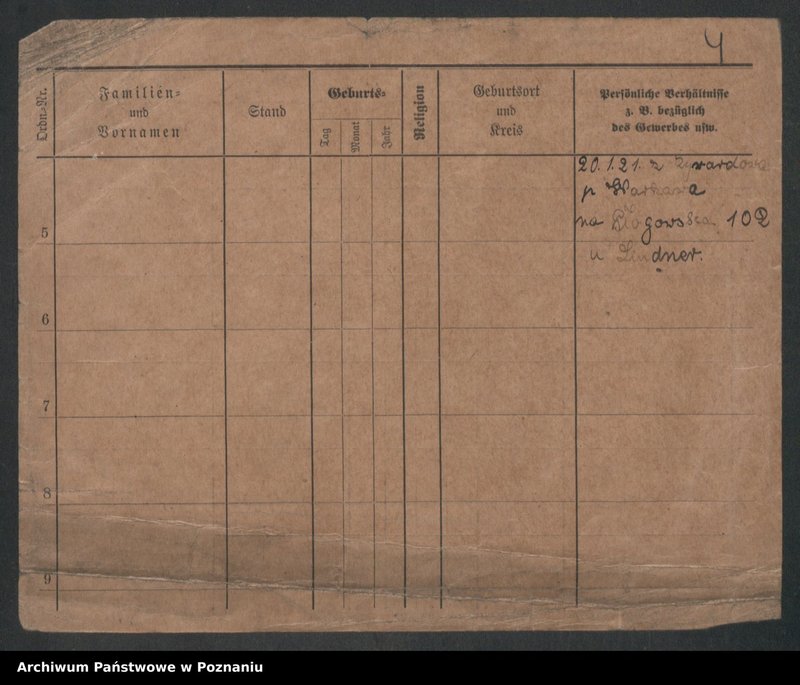 4
Ordn.-Nr.
Familien-
und
Vornamen
Stand
Geburts-
Tag
Monat
Jahr
Religion
Geburtsort
und
Kreis
Persönliche Verhältnisse
z. B. bezüglich
des Gewerbes usw.
20.1.21. z
p Warszawa
na Głogowska 102
u Lindner.
5
6
7
8
9
Archiwum Państwowe w Poznaniu